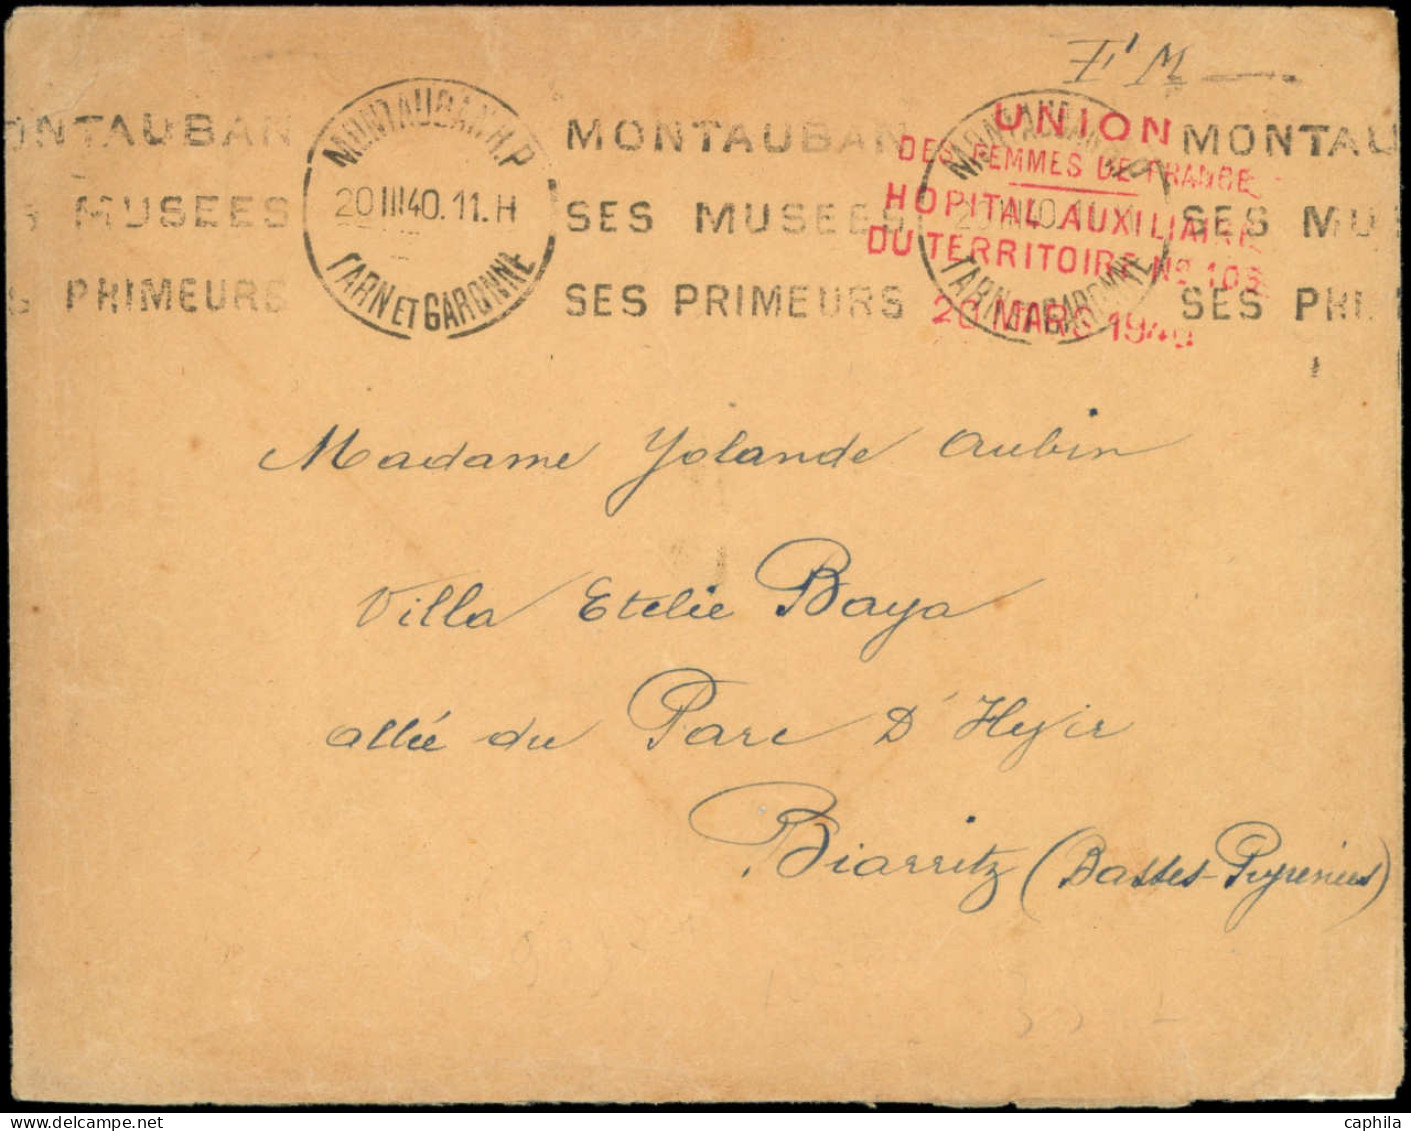 F M
MONTAUBAN
MUSEES
PRIMEURS
MONTAUBAN R.P
20 III 40. 11. H
TARN ET GARONNE
MONTAUBAN
SES MUSEES
SES PRIMEURS
UNION
DES FEMMES DE FRANCE
HOPITAL AUXILIAIRE
DU TERRITOIRE No 103
20 MARS 1940
TARN ET GARONNE
MONTAU
SES MU
SES PRI
Madame Yolande Aubin
Villa Etelie Baya
allée du Parc D'Hyir
Biarritz (Basses-Pyrenées)
caphila